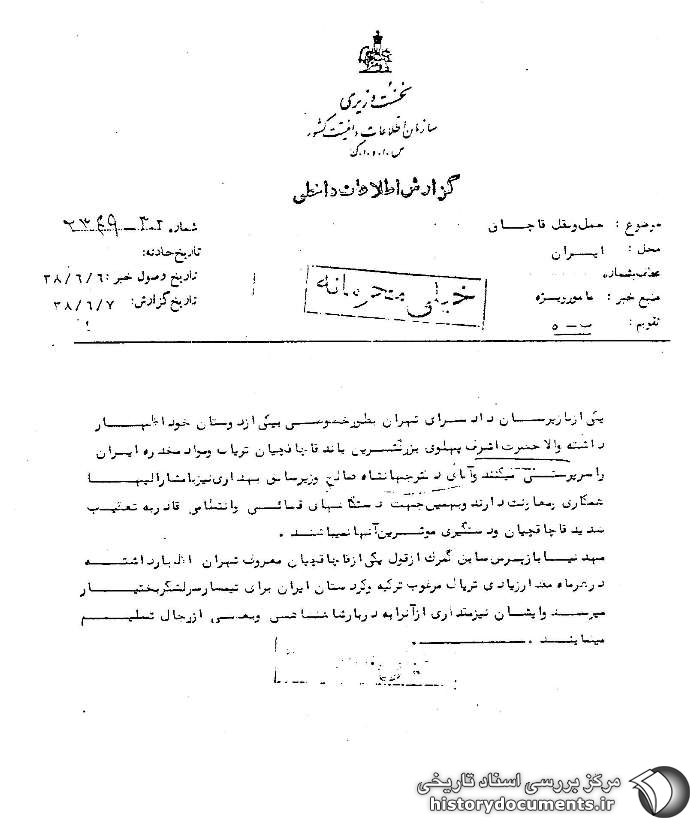 نخست وزیری
سازمان اطلاعات و امنیت کشور
س.ا.و.ا.ک
گزارش اطلاعات داخلی
موضوع : حمل و نقل قاچاق
محل : ایران
عطف بشماره
منبع خبر : مامور ویژه
تقویم : ب - ۵
شماره
تاریخ حادثه:
تاریخ وصول خبر : ۳۸/۶/۶
تاریخ گزارش: ۳۸/۶/۷
خیلی محرمانه
یکی از بازپرسان دادسرای تهران بطور خصوصی بیکی از دوستان خود اظهار
داشته والاحضرت اشرف پهلوی بزرگترین باند قاچاقچیان تریاک و مواد مخدره ایران
را سرپرستی میکنند و آقای دکتر جهانشاه صالح وزیر سابق بهداری نیز با مشارالیها
همکاری و معاونت دارند و بهمین جهت دستگاههای قضائی و انتظامی قادر به تعقیب
شدید قاچاقچیان و دستگیری موثرین آنها نمیباشند .
مهدنیا بازپرس سابق گمرک از قول یکی از قاچاقچیان معروف تهران اظهار داشته
در هر ماه مقدار زیادی تریاک مرغوب ترکیه و کردستان ایران برای تیمسار سرلشگر بختیار
میرسد و ایشان نیز مقداری از آنرا به دربار شاهنشاهی و بعضی از رجال تسلیم
مینمایند .
مرکز بررسی اسناد تاریخی
historydocuments.ir